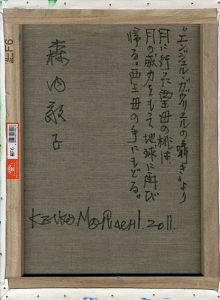 "エンジェル・ガブリエルの囁き"より
月に行った西王母の桃は、
月の威力をもって地球に再び
帰る。西王母の手にもどる。
森内敬子
KEIKO MORIUCHI. 2011.
F6